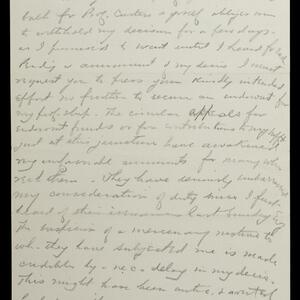 both for Prof. Curtiss & myself obliges me
to withhold my decision for a few days -
as I promised to wait until I heard from
is announced & my desire I must
request you to press your kindly intended
effort no further to secure an endowment for
my professorship. The circular appeals for
endowment funds or for contributions to my support
just at this juncture have awakened
my unfavorable comments for many who
rec'd them. They have seriously embarrassed
my consideration of duty since I first
heard of their issuance last Sunday
The suspicion of a mercenary motive to
wh. they have subjected me is made
credible by a nec. delay in my decision.
This might have been